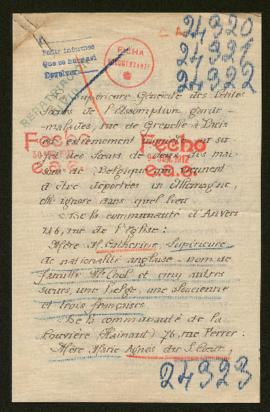 24920
24921
24922
Pedir informes
Que se busque
Devolver
FICHA
La Supérieure Générale des Petites
Sœurs de l'Assomption garde-
malades, rue de Grenelle à Paris
est extrêmement inquiète sur
le sort des sœurs de deux de ses mai-
sons de Belgique qui viennent
d'être déportées en Allemagne,
elle ignore dans quel lieu.
Fecho
Fecho
De la communauté d'Anvers
26, rue de l'Eglise:
Mère M. Catherine, Supérieure
de nationalité anglaise - nom de
famille et cinq autres
sœurs, une belge, une alsacienne
et trois françaises.
De la communauté de la
Louvière (Hainaut) 76, rue Ferrer:
Mère Marie Agnès du S. Cœur,
24923